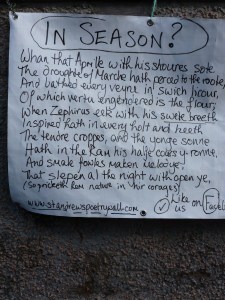 IN SEASON?
Whan that Aprille with his shoures sote
The droughte of Marche hath perced to the roote,
And bathed every veyne in swich licour,
Of which vertu engendered is the flour;
When Zephirus eek with his swete breeth
Inspired hath in every holt and heeth
The tendre croppes, and the yonge sonne
Hath in the Ram his halfe cours y-ronne,
And smale fowles maken melodye,
That slepen al the night with open ye,
(So priketh hem nature in hir corages)
www.standrewspoetrywall.com
Like us on